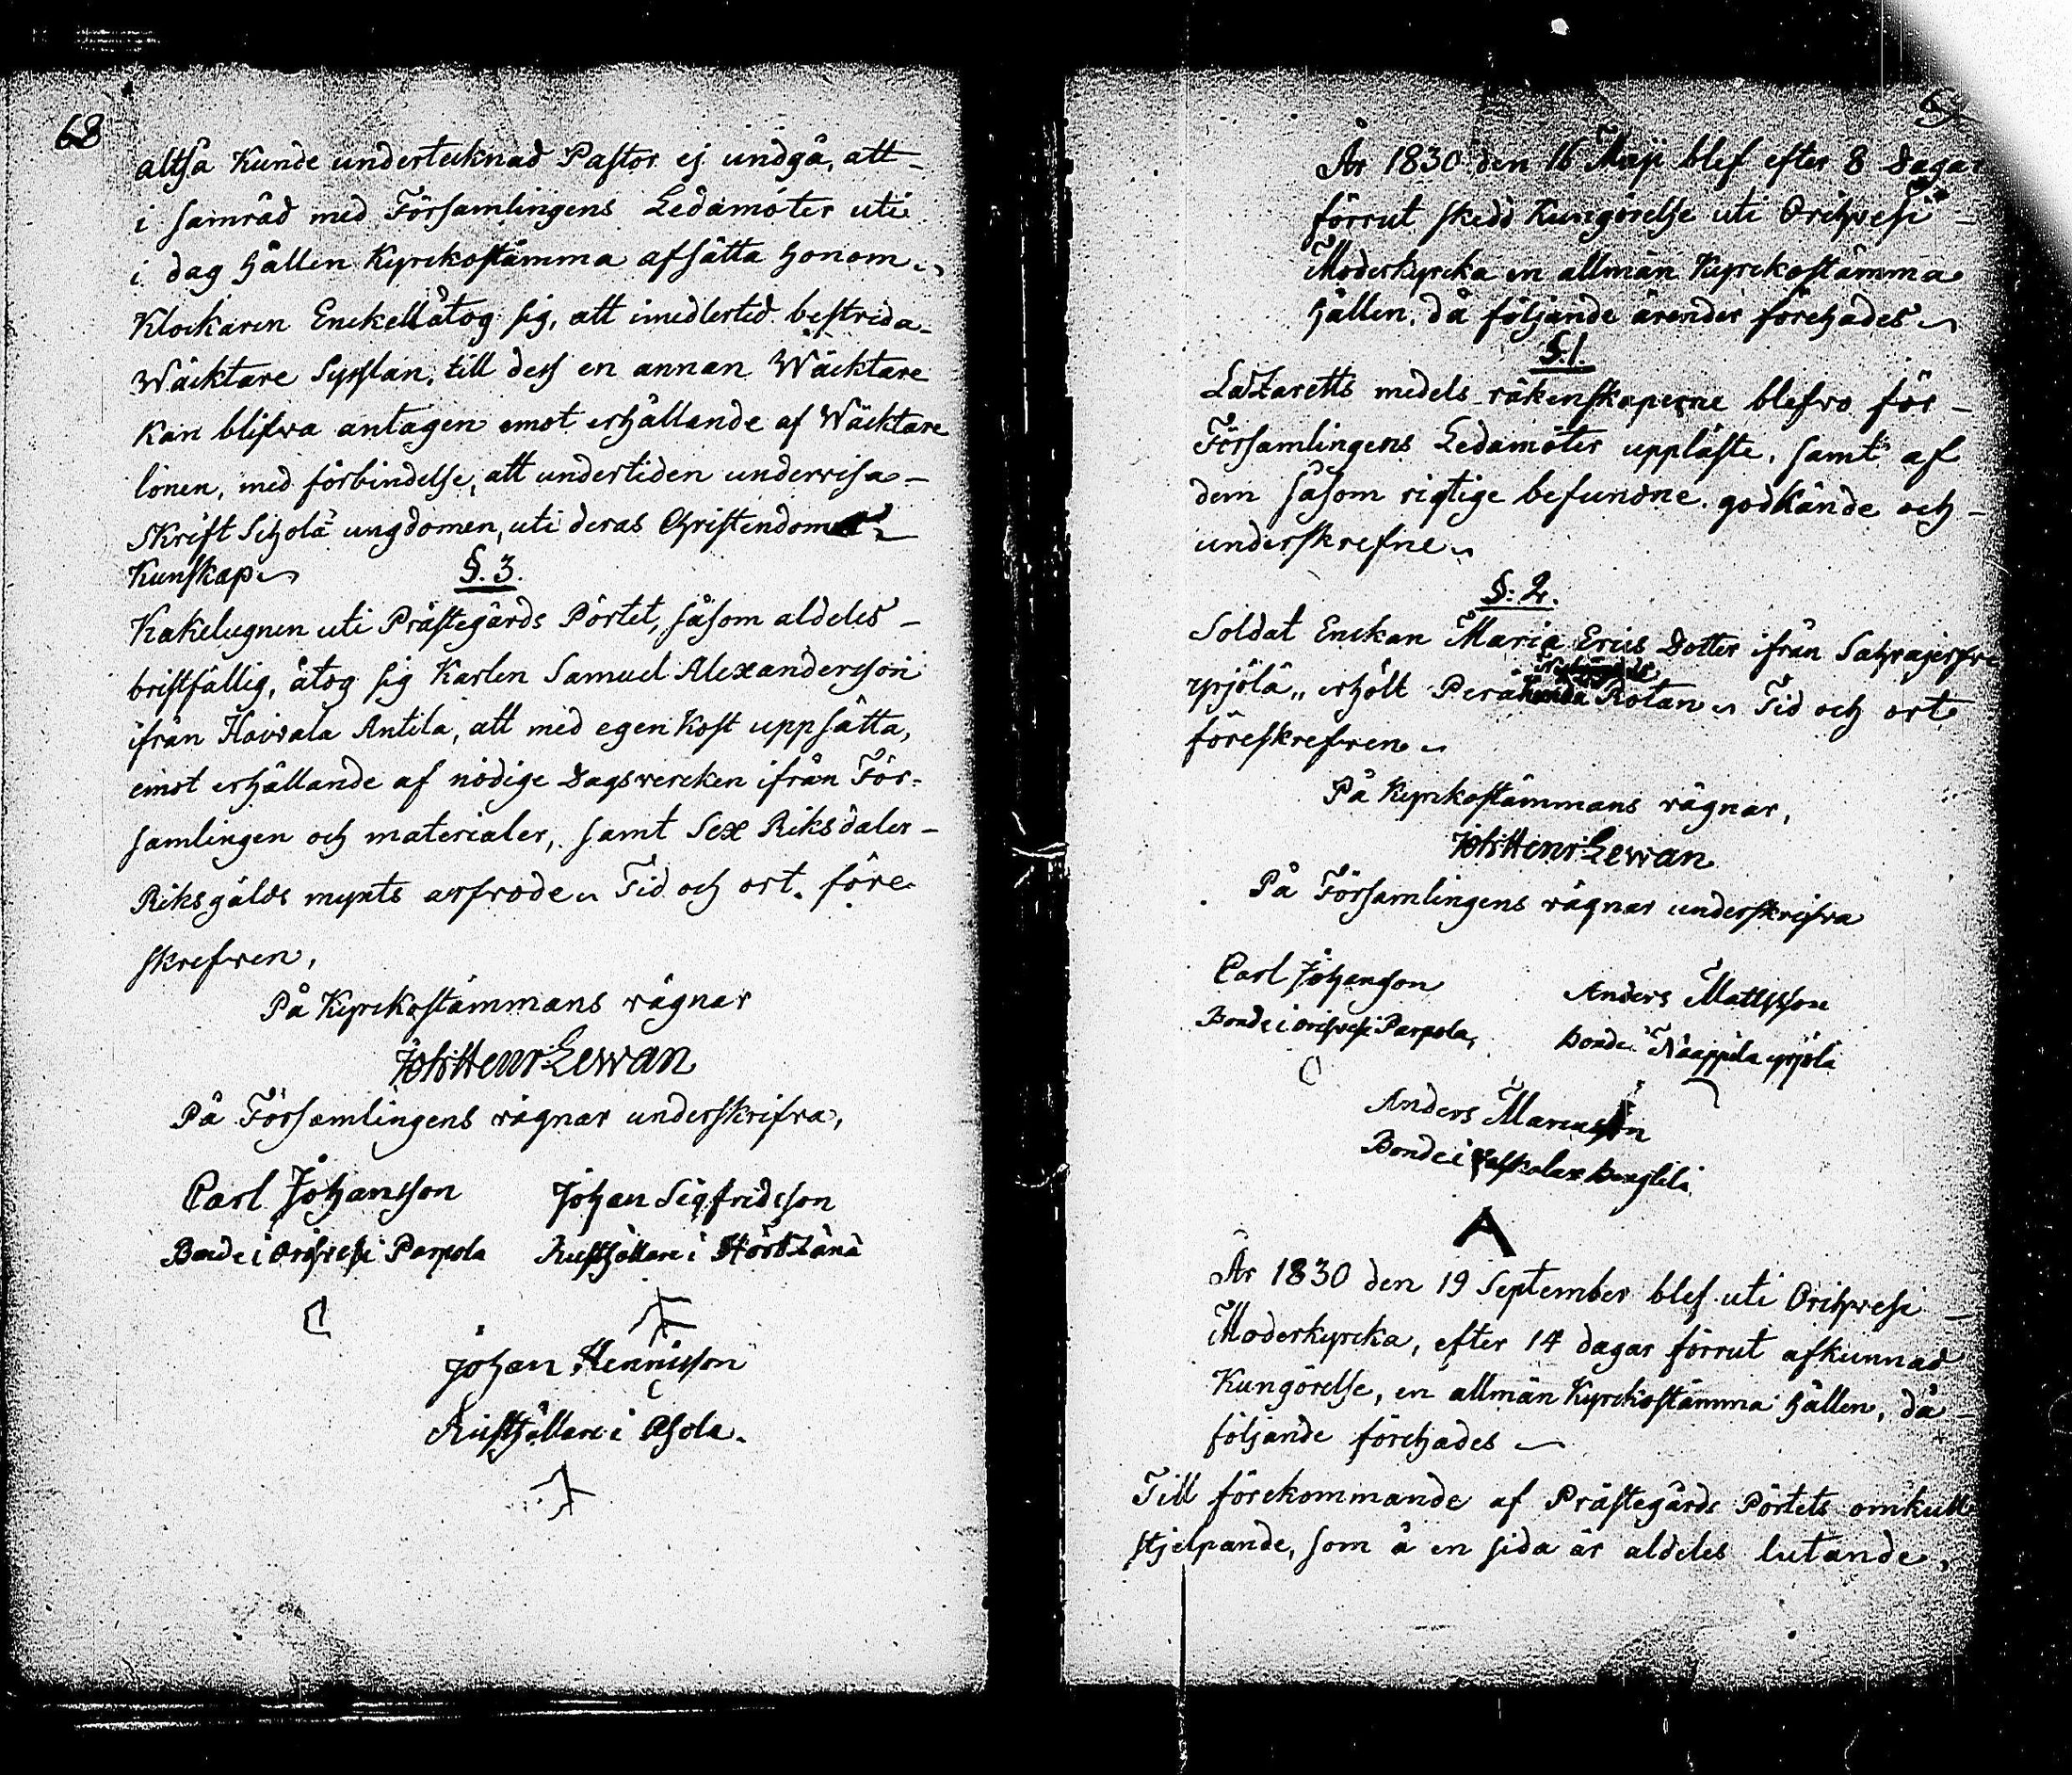 68
altså Kunde undertecknad Pastor ej undgå, att
i samråd med Församlingens Ledamöter uti
i dag hållen Kyrckostämma afsätta honom.
Klockaren Enckell åtog sig, att imedlertid bestrida
Wäcktare Sysslan, till dess en annan Wäcktare
Kan blifva antagen emot erhållande af Wäcktare
lönen, med förbindelse, att undertiden undervisa
Skrift Schola ungdomen, uti deras Christendoms
Kunskap
§. 3.
Kakelugnen uti Prästegårds Pörtet, såsom aldeles
bristfällig, åtog sig Karlen Samuel Alexandersson
ifrån Haivala Antila, att med egen Kost uppsätta,
emot erhållande af nödige Dagsvercken ifrån För-
samlingen och materialer, samt Sex Riksdaler
Riksgälds mynts arfvode. Tid och ort. före
skrefven,
På Kyrckostämmans vägnar
Joh: Henr: Lewan
På Församlingens vägnar underskrifva,
Carl Johansson Johan Sigfridsson
Bonde i Orihvesi Parpola Rusthållare i
Johan Hennisson
Rusthållare i
År 1830 den 16 Maji blef efter 8 Dagar
förrut skedd Kungörelse uti Orihvesi
Moderkyrcka en allmän Kyrckostämma
hållen, då följande ärender förehades
§. 1.
Lazaretts medels räkenskaperne blefvo för
Församlingens Ledamöter uppläste, samt af
dem såsom rigtige befundne. godkände och
underskrefne
§: 2.
Soldat Enckan Maria Erics Dotter ifrån
yrjölä,, erhölt Rotan. Tid och ort
föreskrefven
På Kyrckostämmans vägnar,
Joh: Henr: Lewan
På Församlingens vägnar underskrifva
Carl Johansson Anders Mattsson
Bonde i Orihvesi Parpola, Bonde i Naappila yrjölä
Anders Marcusson
Bonde i
A
År 1830 den 19 September blef uti Orihvesi
Moderkyrcka, efter 14 dagar förrut afkunnad
Kungörelse, en allmän Kyrckostämma hållen, då
följande förehades
Till förekommande af Prästegårds Pörtets omkull
stjelpande, som å en sida är aldeles lutande,